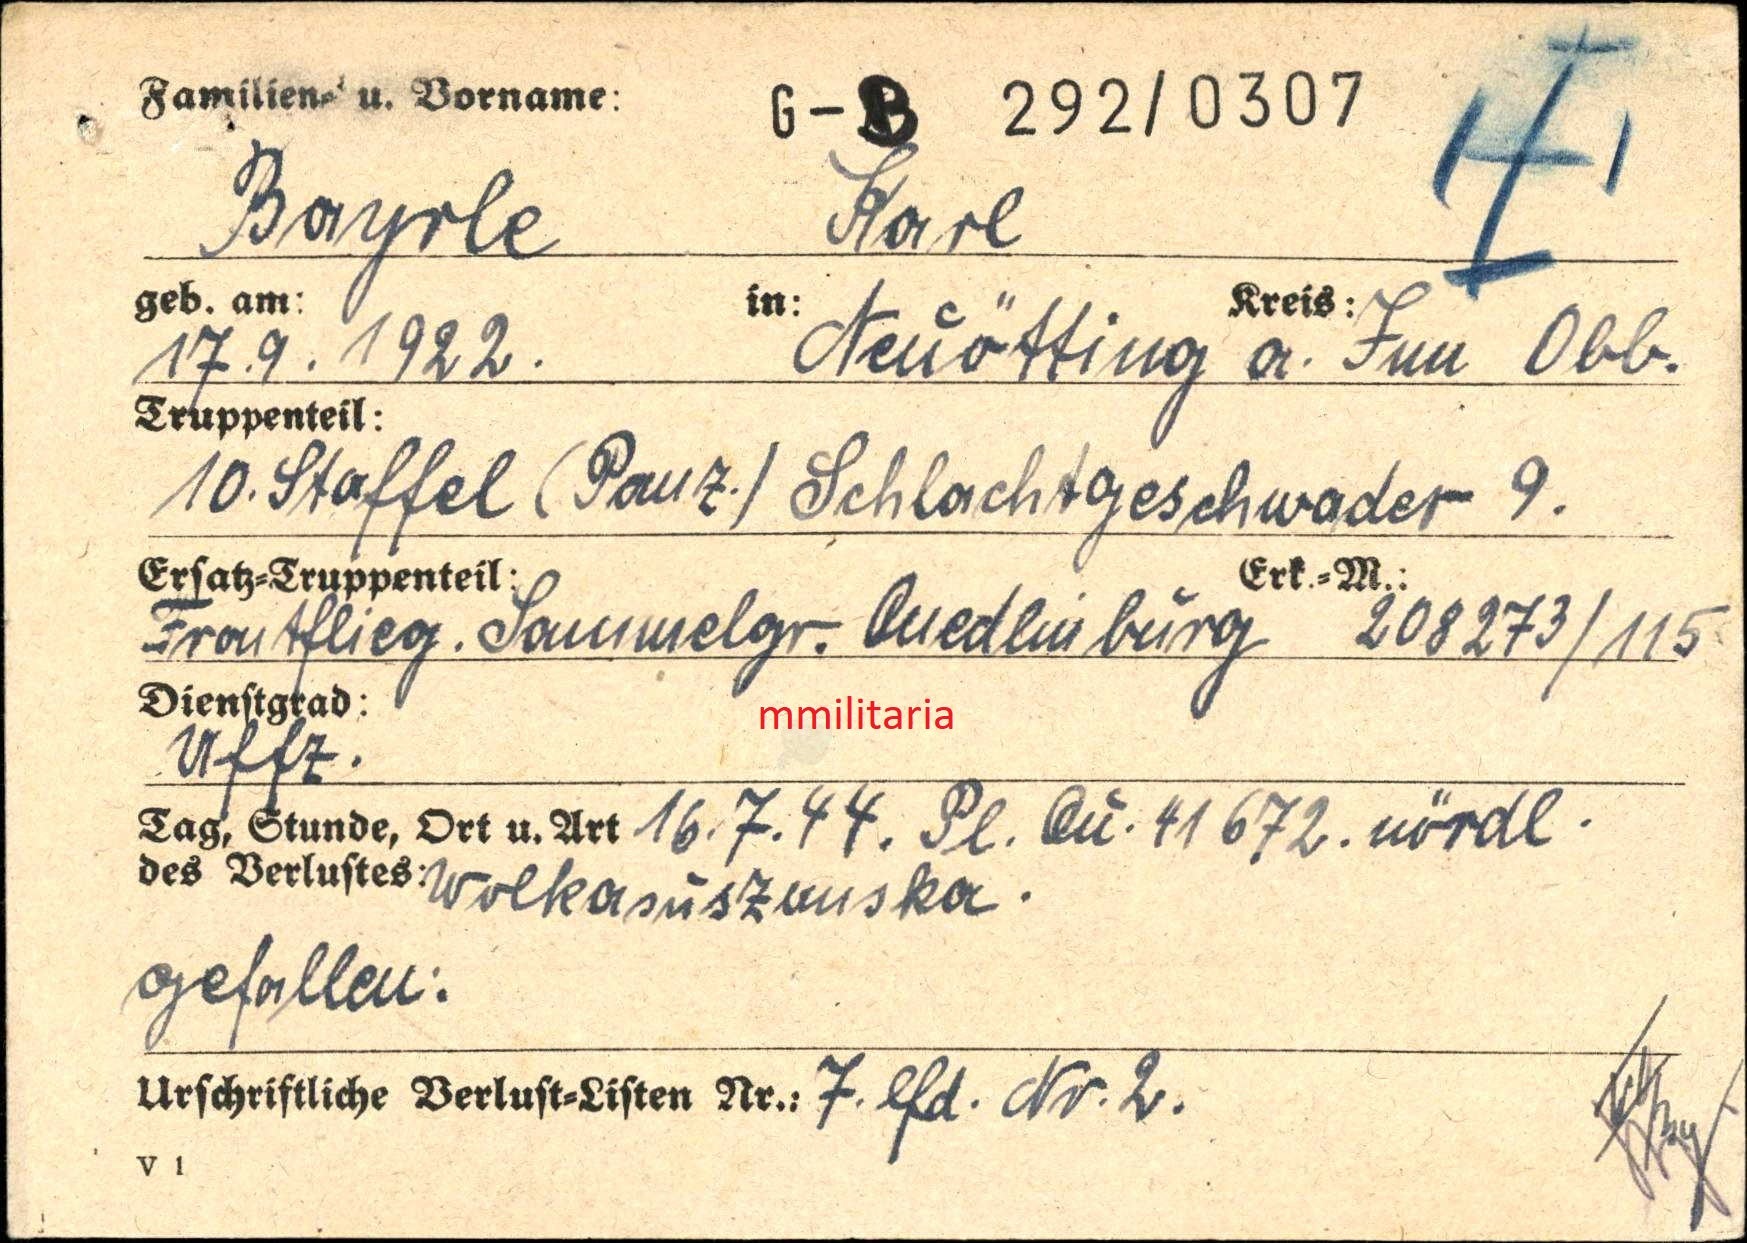 Familien- u. Vorname: G-B 292/0307
Bayrle Karl
geb. am: in: Kreis:
17.9.1922. Neuötting a. Inn Obb.
Truppenteil:
10. Staffel (Panz.) Schlachtgeschwader 9.
Ersatz-Truppenteil: Erk.-M.:
Frontflieg. Sammelgr. Quedlinburg 208273/115
Dienstgrad:
mmilitaria
Uffz.
Tag, Stunde, Ort u. Art 16.7.44. Pl. Qu. 41672. nördl.
des Verlustes:
gefallen:
Urschriftliche Verlust-Listen Nr.: 7. lfd. Nr. 2.
V 1